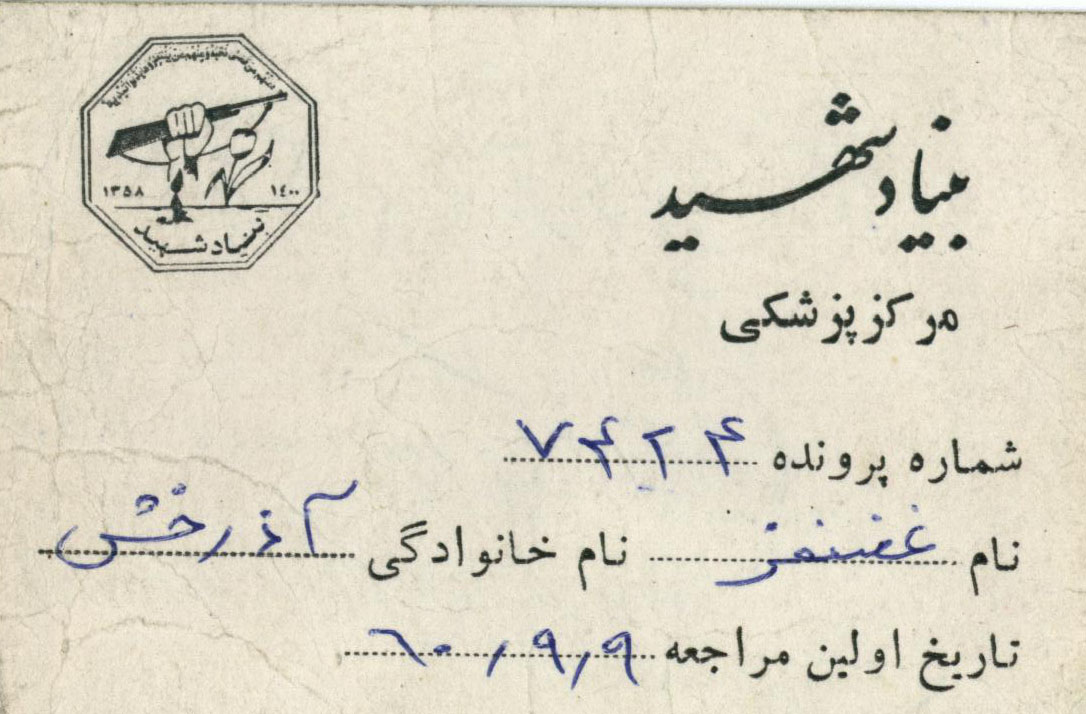 ۱۳۵۸
۱٤۰۰
بنیاد شهید
بنیاد شهید
مرکز پزشکی
شماره پرونده ۷۴۲۴
نام غضنفر نام خانوادگی آذرخش
تاریخ اولین مراجعه ۶۰/۹/۹